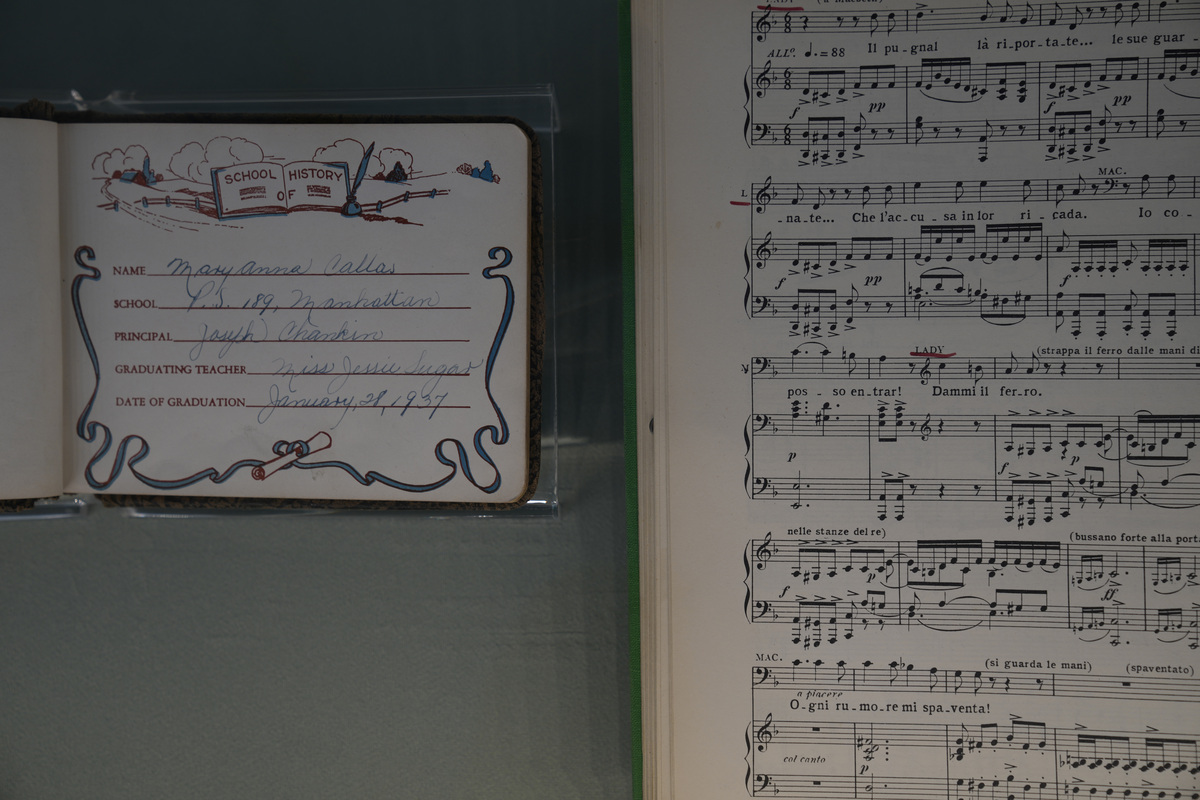 SCHOOL HISTORY
OF
NAME Mary Anna Callas
SCHOOL P.S. 189, Manhattan
PRINCIPAL Joseph Chankin
GRADUATING TEACHER Miss Jessie Sugar
DATE OF GRADUATION January, 28, 1937
LADY (a Macbeth)
ALLº. ♩. = 88 Il pu_gnal là ri_por_ta_te... le sue guar -
f pp f pp
L. MAC.
_na_te... Che l'ac_cu_sa in lor ri_cada. Io co -
f pp f
LADY (strappa il ferro dalle mani di
pos - so en_trar! Dammi il fer_ro.
p f p
nelle stanze del re) (bussano forte alla porta
f p ff
MAC. (si guarda le mani) (spaventato)
a piacere
O_gni ru_mo_re mi spa_venta!
col canto p